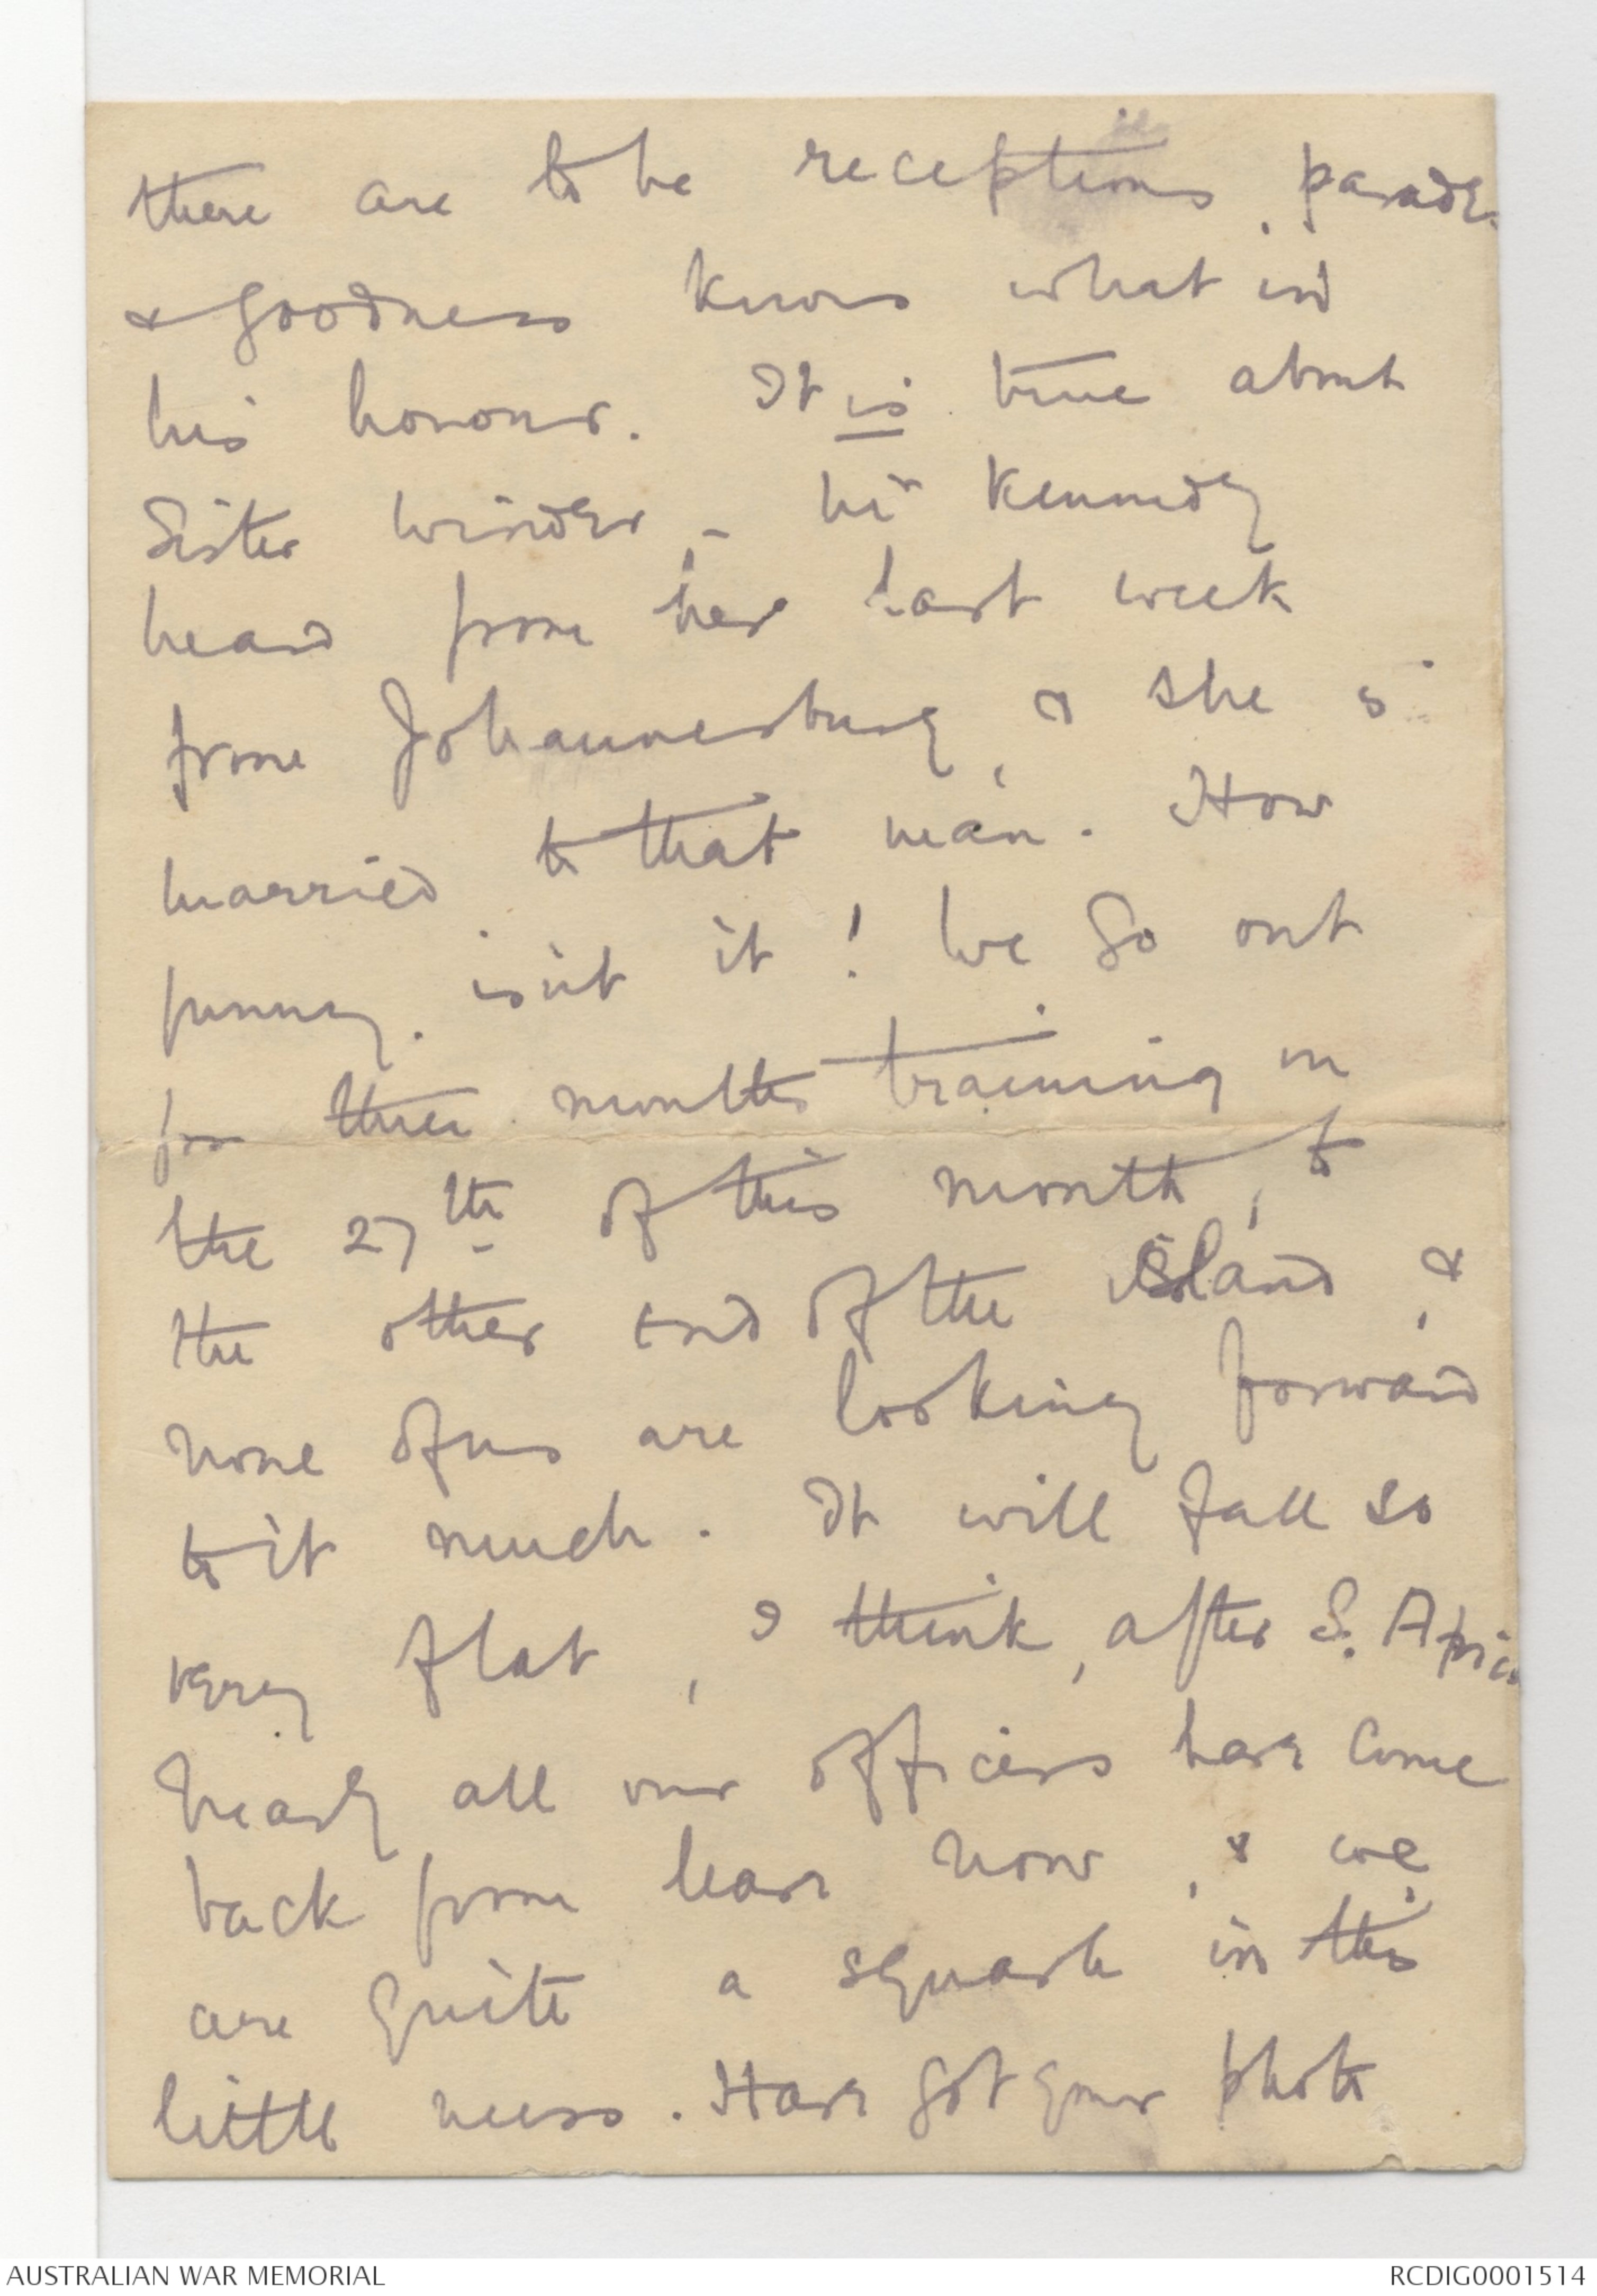 there are to be receptions, parades
& goodness knows what in
his honour. It is true about
Sister Winder, - Mr Kennedy
heard from her last week
from Johannesburg, & she is
married to that man. How
funny, isn't it! We go out
for three months training on
the 27th of this month, to
the other end of the island, &
none of us are looking forward
to it much. It will fall so
very flat, I think, after S. Africa
Nearly all our officers have come
back from leave now, & we
are quite a squash in this
little mess. Have got your photo
AUSTRALIAN WAR MEMORIAL
RCDIG0001514